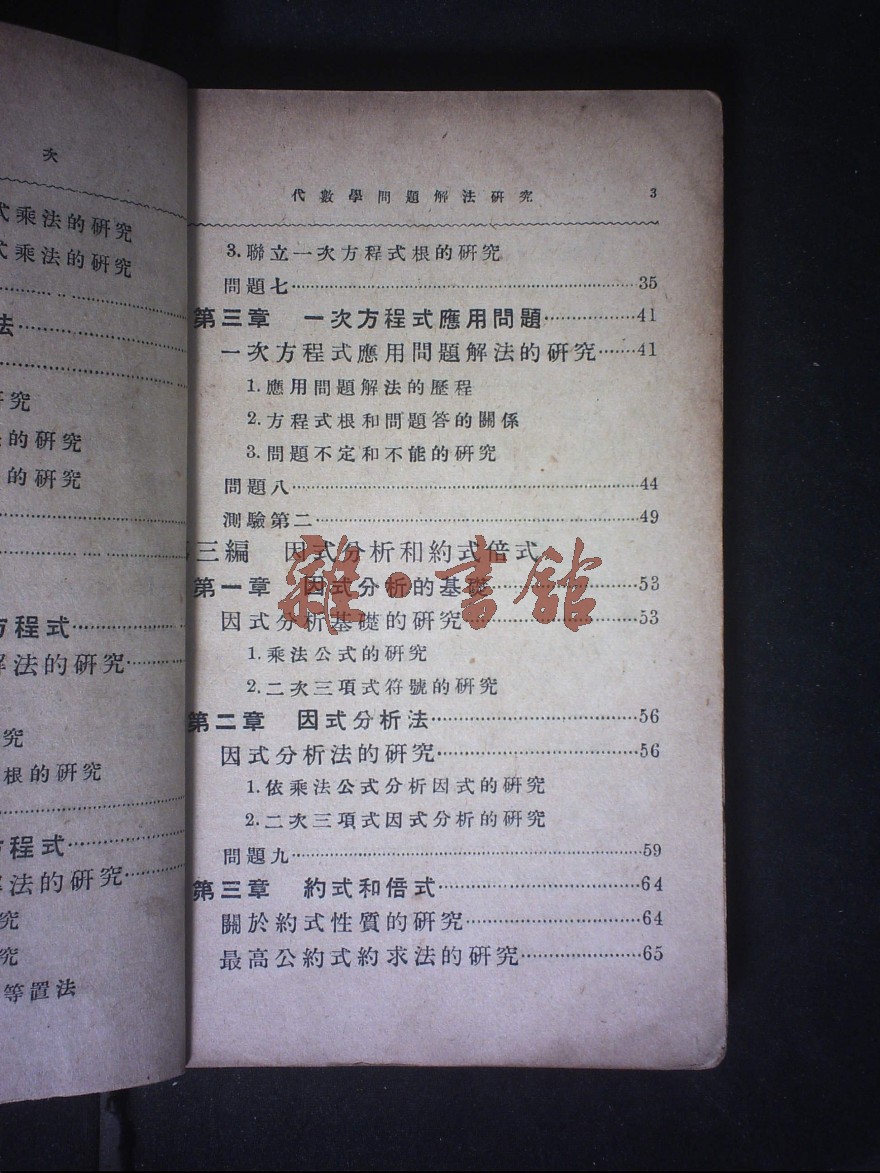 次
式乘法的研究
式乘法的研究
法
研究
的研究
的研究
方程式
解法的研究
究
根的研究
方程式
解法的研究
究
究
等置法
代數學問題解法研究 3
3.聯立一次方程式根的研究
問題七 35
第三章 一次方程式應用問題 41
一次方程式應用問題解法的研究 41
1.應用問題解法的歷程
2.方程式根和問題答的關係
3.問題不定和不能的研究
問題八 44
測驗第二 49
第三編 因式分析和約式倍式
第一章 因式分析的基礎 53
因式分析基礎的研究 53
1.乘法公式的研究
2.二次三項式符號的研究
第二章 因式分析法 56
因式分析法的研究 56
1.依乘法公式分析因式的研究
2.二次三項式因式分析的研究
問題九 59
第三章 約式和倍式 64
關於約式性質的研究 64
最高公約式約求法的研究 65
雜·書館